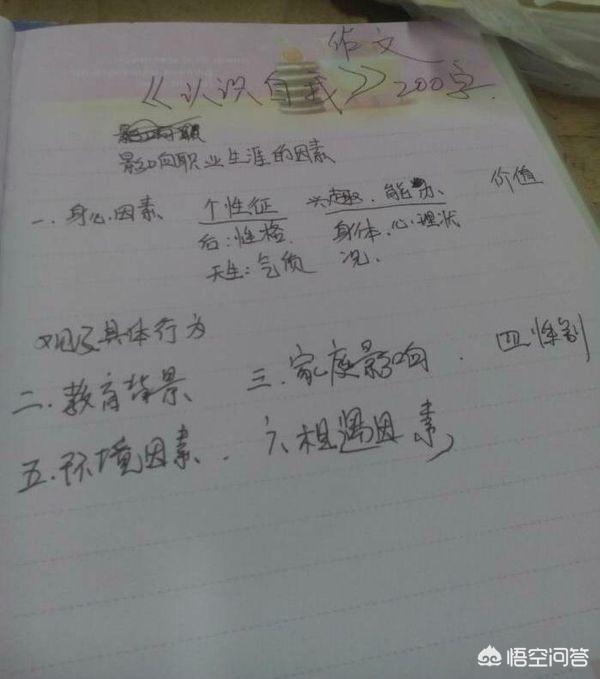 作文
《认识自我》200字.
影响职业生涯的因素
一.身心因素 个性征 兴趣.能力、 价值
后:性格 身体.心理状
天生:气质 况、
观及具体行为
二.教育背景 三.家庭影响. 四性别
五.环境因素. 六相遇因素
悟空问答